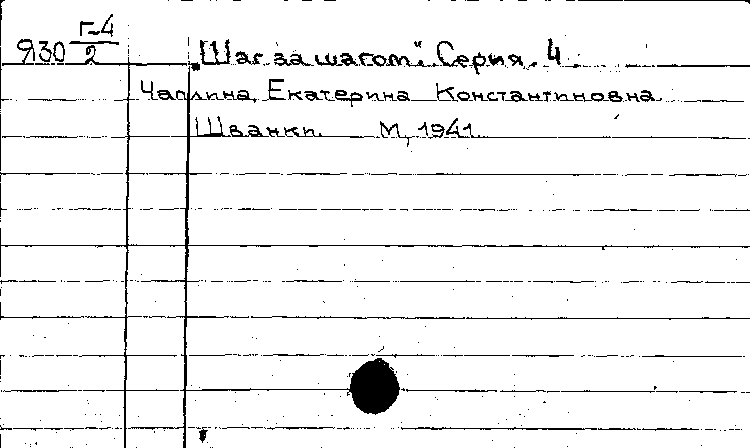 Я30 Г-4/2 „Шаг за шагом". Серия. 4.
Чаплина, Екатерина Константиновна
Шванки. М, 1941.